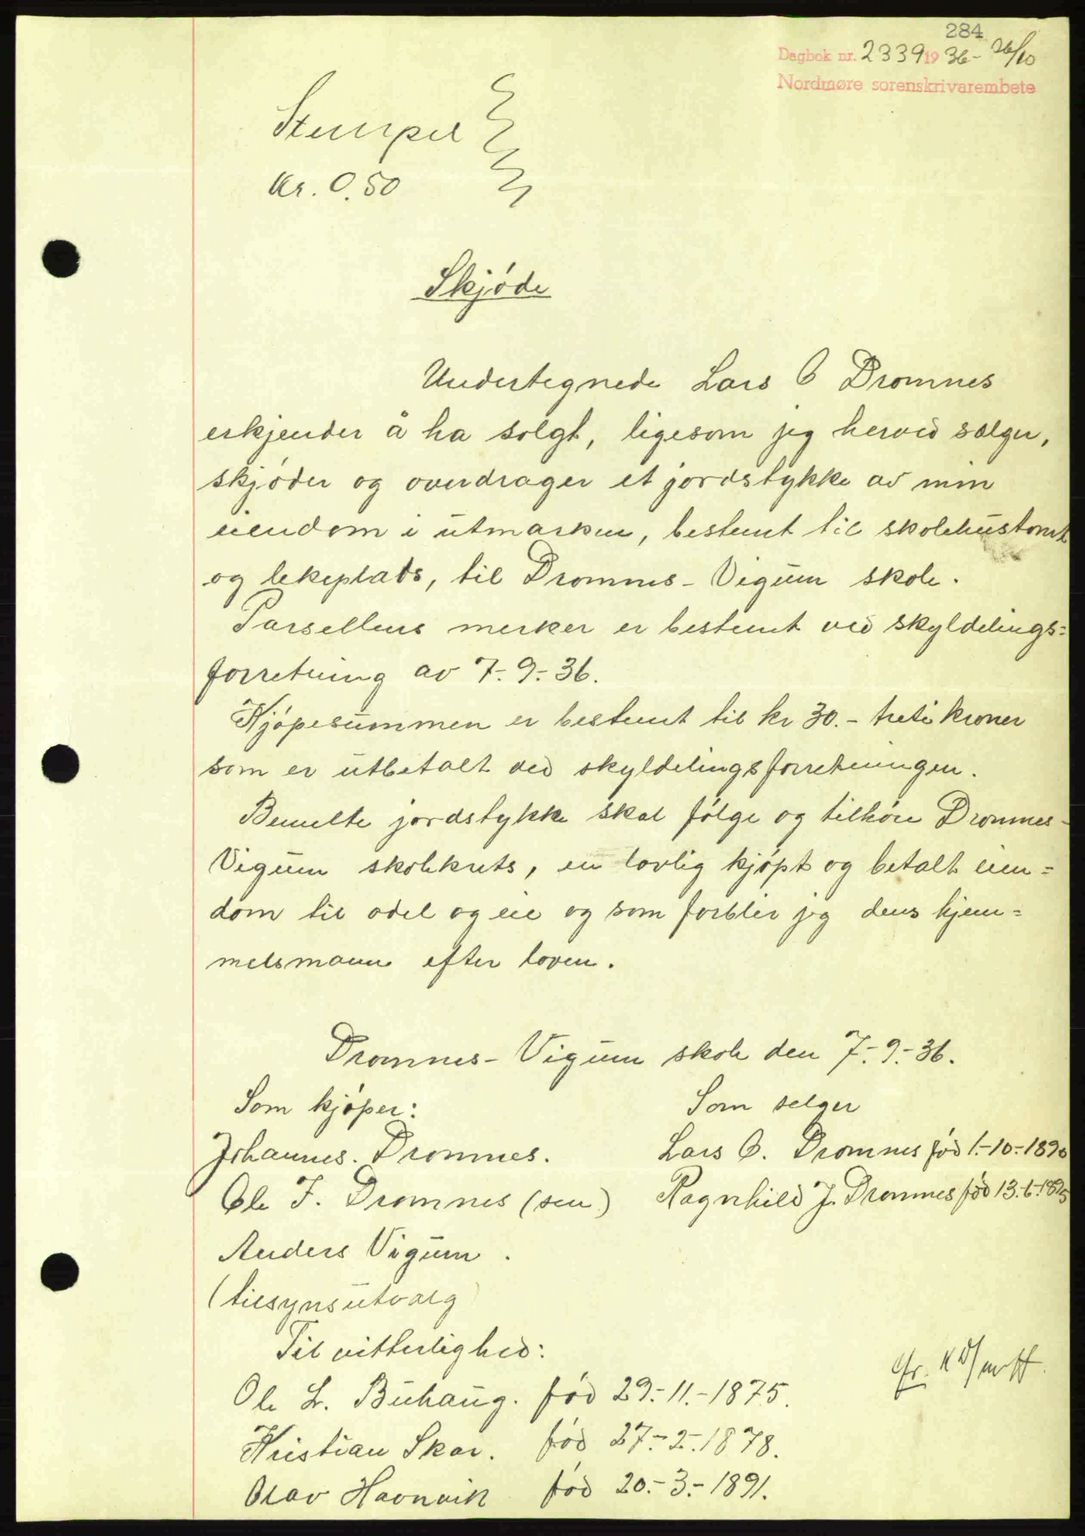 284
Dagbok nr. 2339 1936 - 26/10
Nordmøre sorenskrivarembete
Stempel
Kr. 0.50
Skjøde
Undertegnede Lars O Dromnes
erkjender å ha solgt, ligesom jeg herved sælger,
skjøder og overdrager et jordstykke av min
eiendom i utmarken, bestemt til skolehustomt
og lekeplads, til Dromnes - Vigum skole.
Parsellens merker er bestemt ved skyldelings=
forretning av 7.- 9.- 36.
Kjøpesummen er bestemt til kr 30.- treti kroner
som er utbetalt ved skyldelingsforretningen.
Bemelte jordstykke skal følge og tilhøre Dromnes-
Vigum skolekrets, en lovlig kjøpt og betalt eien=
dom til odel og eie og som forblir jeg dens hjem=
melsmann efter loven.
Dromnes - Vigum skole den 7.- 9.- 36.
Som kjøper:
Som selger
Johannes. Dromnes.
Lars O. Dromnes fød 1.-10.-1890
Ole J. Dromnes (sen)
Ragnhild J. Dromnes fød 13.6.1895
Anders Vigum.
(tilsynsutvalg)
Til vitterlighed:
Ole L. Buhaug. fød 29.-11.-1875.
Kristian Skar. fød 27.-2.-1878.
Olav Havnvik fød 20.-3.-1891.